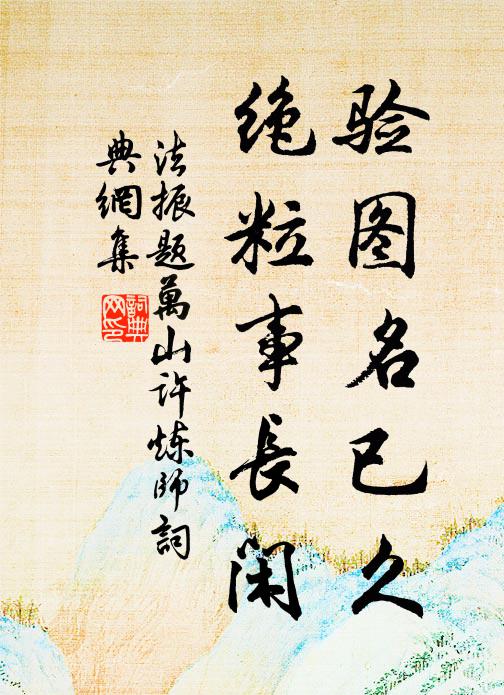 验图名已久
绝粒事长闲
法振题萬山许炼师詞
典網集
詞典
网印